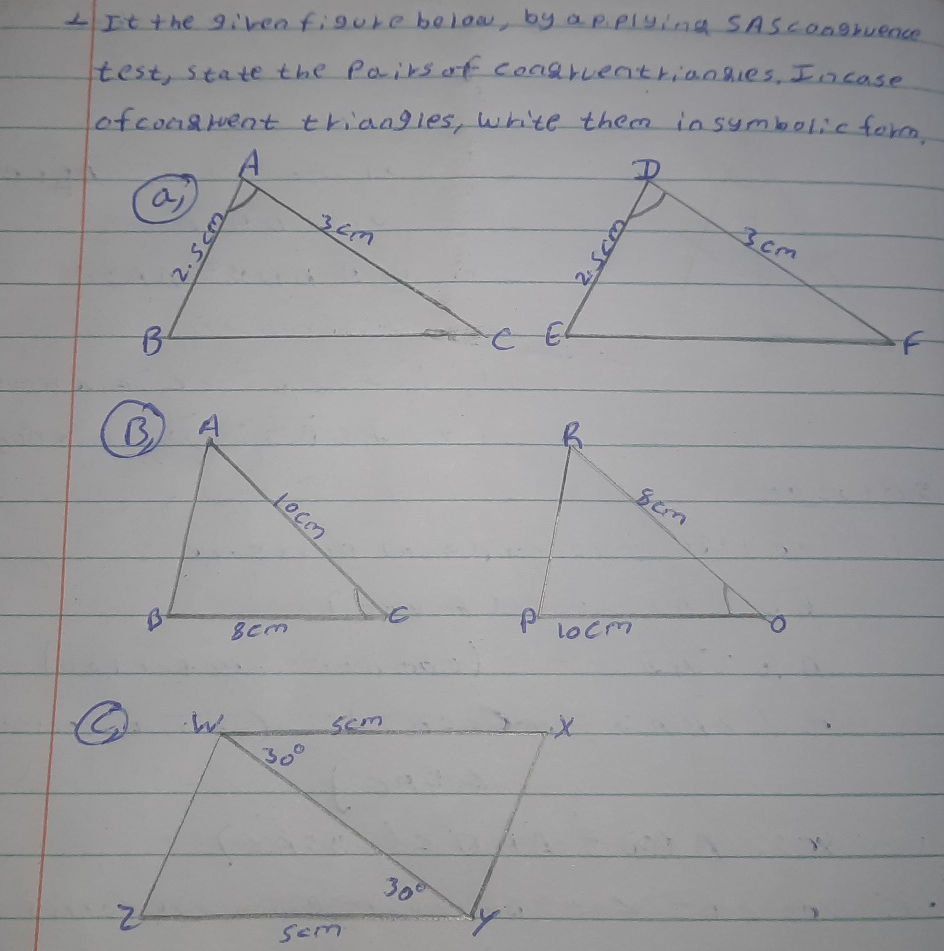 1 It the given figure below, by applying SAS congruence
test, state the Pairs of congruent riangles. Incase
of congruent triangles, write them in symbolic form.
a, A D
2.5cm 3cm 2.5cm 3cm
B C E F
B, A R
10cm 8cm
B 8cm C P 10cm O
C, W 5cm X
30°
30°
Z 5cm Y